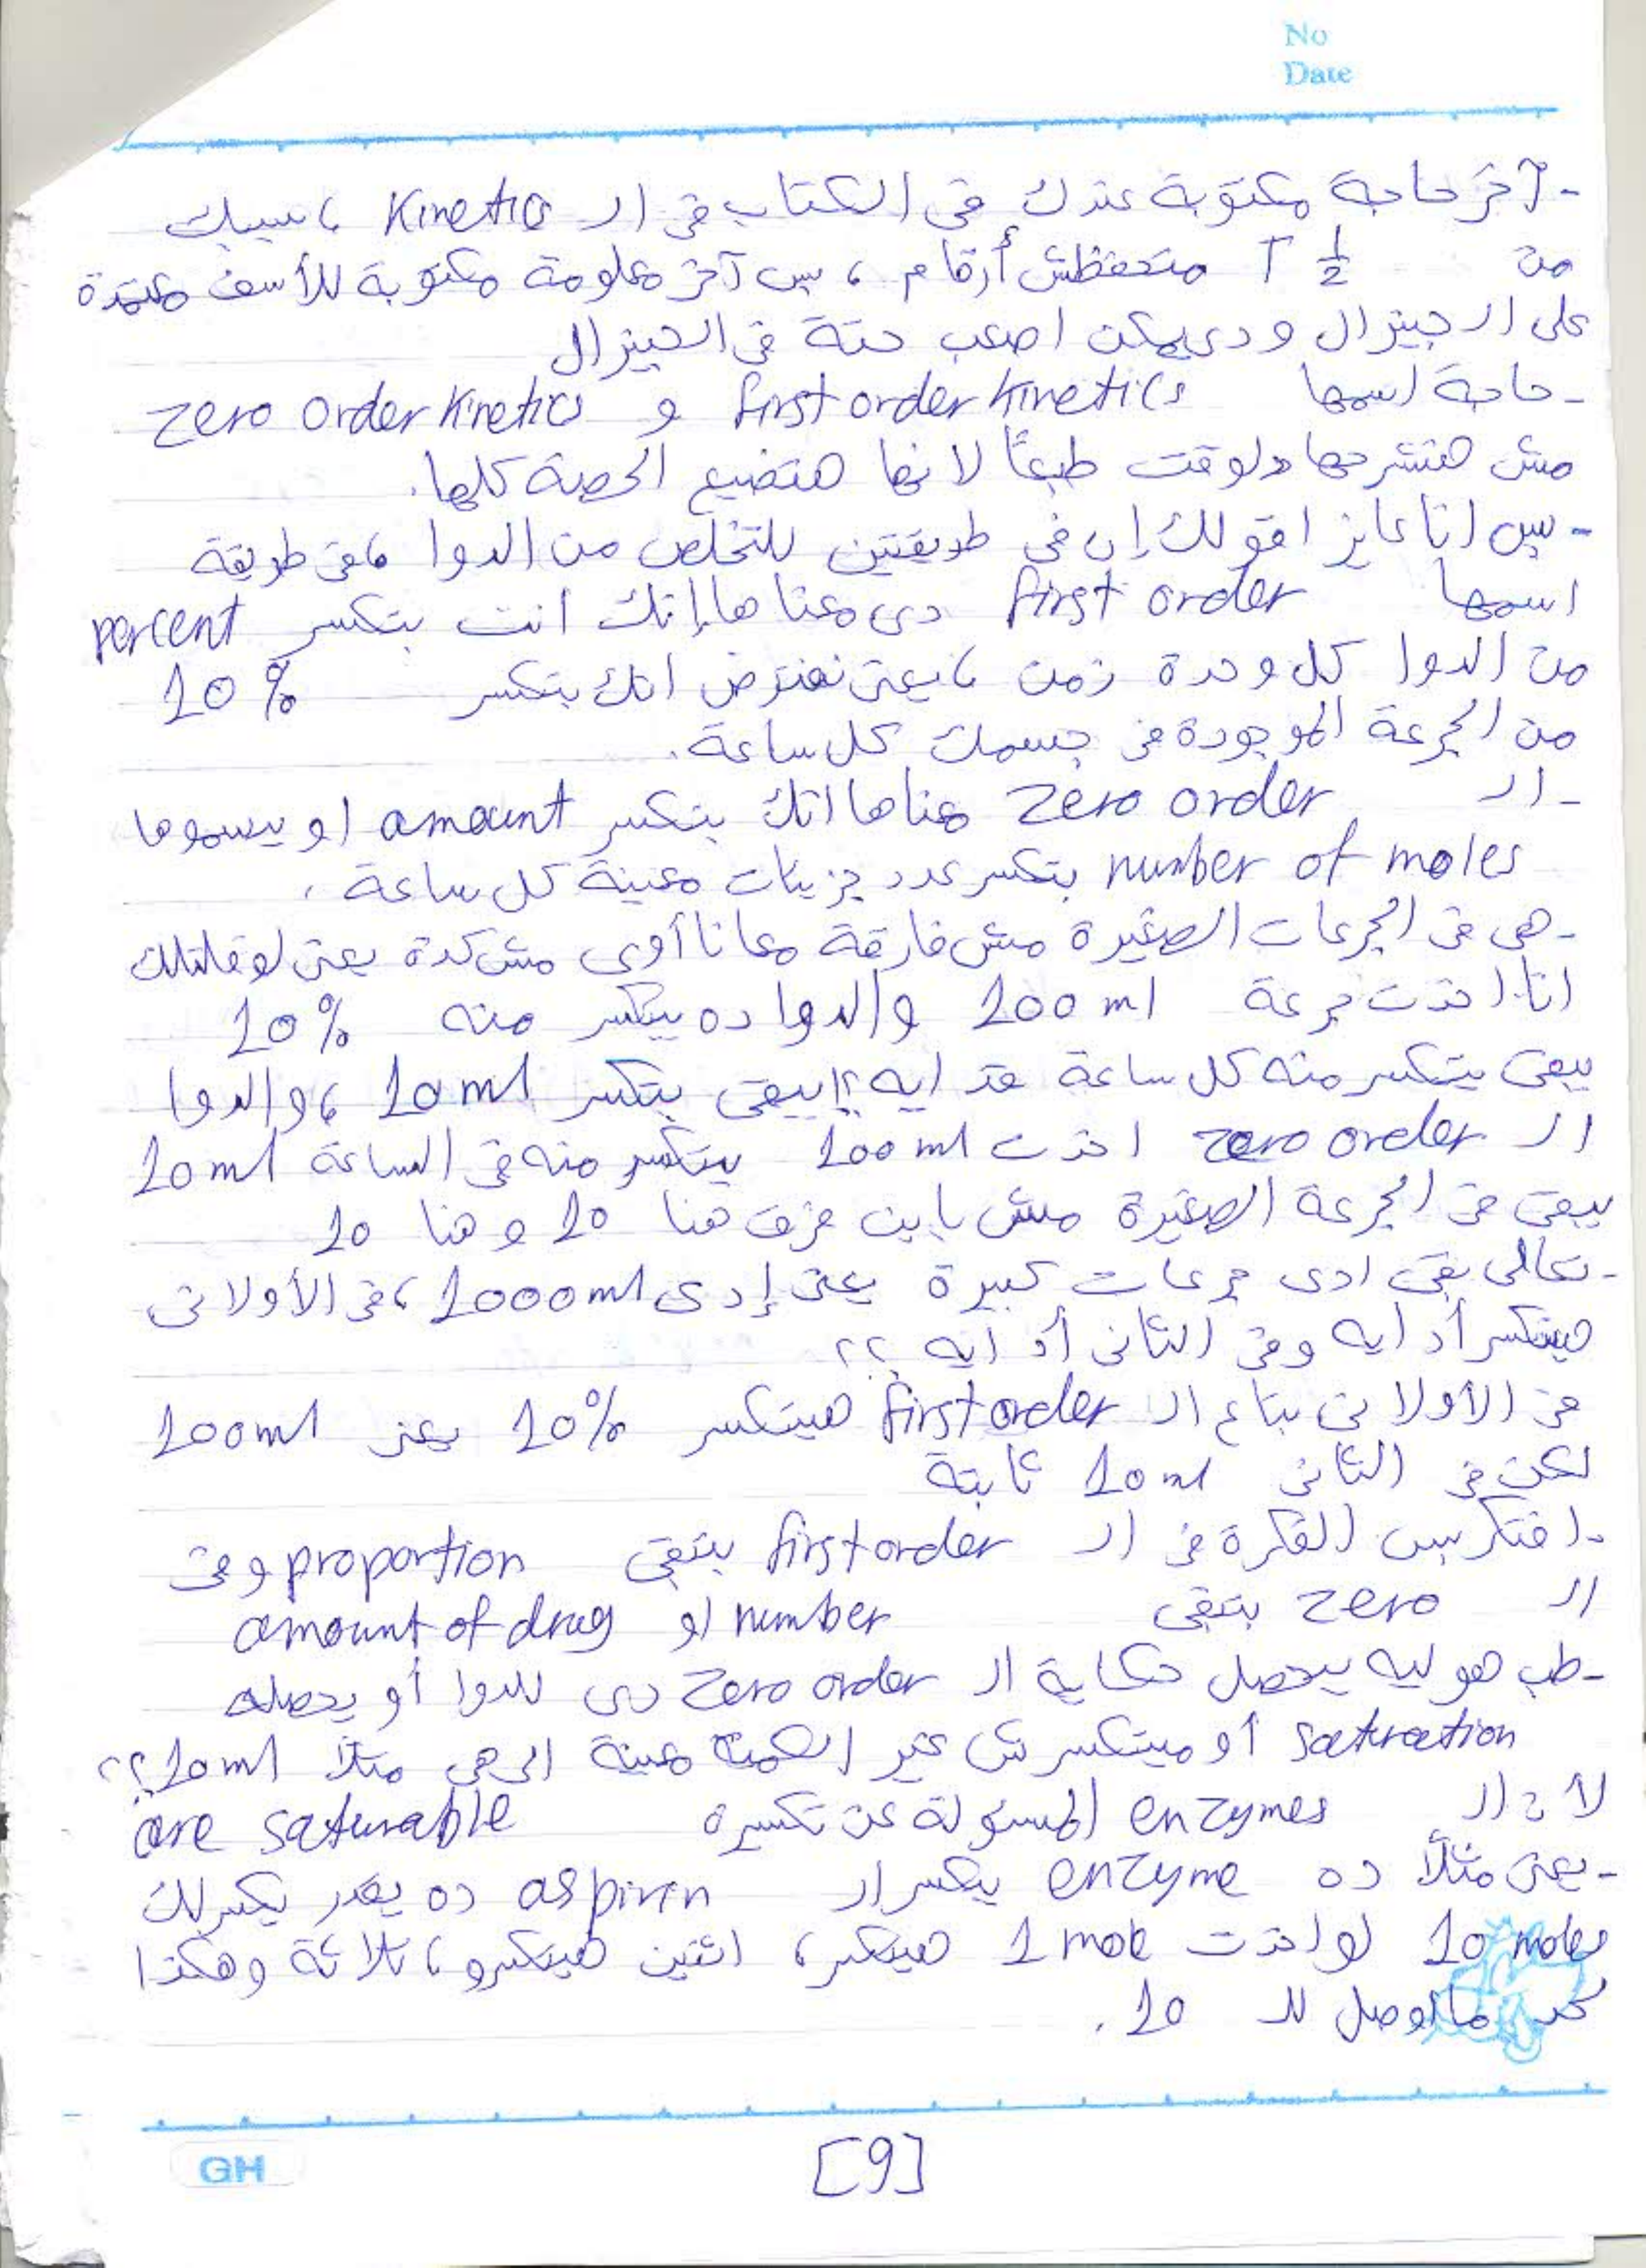 No
Date
- آخر حاجة مكتوبة عندك فى الكتاب فى ال Kinetics ، سيبك
من T ½ متحفظش أرقام ، بس آخر معلومة مكتوبة للأسف معتمدة
على ال جينرال ودى يمكن اصعب حتة فى الجينرال
- حاجة اسمها first order kinetics و zero order kinetics
مش هنشرحها دلوقت طبعًا لانها هتضيع الحصة كلها.
- بس انا عايز اقولك إن فى طريقتين للتخلص من الدوا ، فى طريقة
اسمها first order دى معناها إنك انت بتكسر percent
من الدوا كل وحدة زمن ، يعنى نفترض انك بتكسر 10%
من الجرعة الموجودة فى جسمك كل ساعة.
- ال zero order معناها انك بتكسر amount او بيسموها
number of moles بتكسر عدد جزيئات معينة كل ساعة ،
- هى فى الجرعات الصغيرة مش فارقة معانا أوى مش كدة يعنى لو قلتلك
انا اخدت جرعة 100 ml والدوا ده بيتكسر منه 10%
يبقى بيتكسر منه كل ساعة قد ايه ؟! يبقى بتكسر 10 ml ، والدوا
ال zero order اخدت 100 ml بيتكسر منه فى الساعة 10 ml
يبقى فى الجرعة الصغيرة مش باين فرق هنا 10 و هنا 10
- تعالى بقى ادى جرعات كبيرة يعنى إدى 1000 ml ، فى الأولانى
هيتكسر أد ايه وفى التانى أد ايه ؟؟
فى الأولانى بتاع ال first order هيتكسر 10% يعنى 100 ml
لكن فى التانى 10 ml ثابتة
- افتكر بس الفكرة فى ال first order بتبقى proportion وفى
ال zero بتبقى number او amount of drug
- طب هو ليه بيحصل حكاية ال zero order دى للدوا أو يحصله
saturation أو ميتكسرش غير الكمية معينة الى هى مثلا 10 ml ؟؟
لان ال enzymes المسئولة عن تكسيره are saturable
- يعنى مثلًا ده enzyme بيكسر ال aspirin ده يقدر يكسرلك
10 moles لو اخدت 1 mole هيتكسر ، اتنين هيتكسرو ، تلاتة وهكذا
لحد ما اوصل لل 10 .
GH
[9]